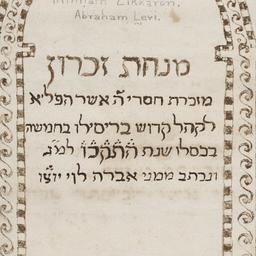 Minhath Zikkaron.
Abraham Levi.
מנחת זכרון
מזכרת חסדי ה׳ אשר הפליא
לקהל קדוש ברסילו בחמשה
בכסלו שנת התקכו למ״נ
ונכתב ממני אברה׳ לוי יוצ״ו